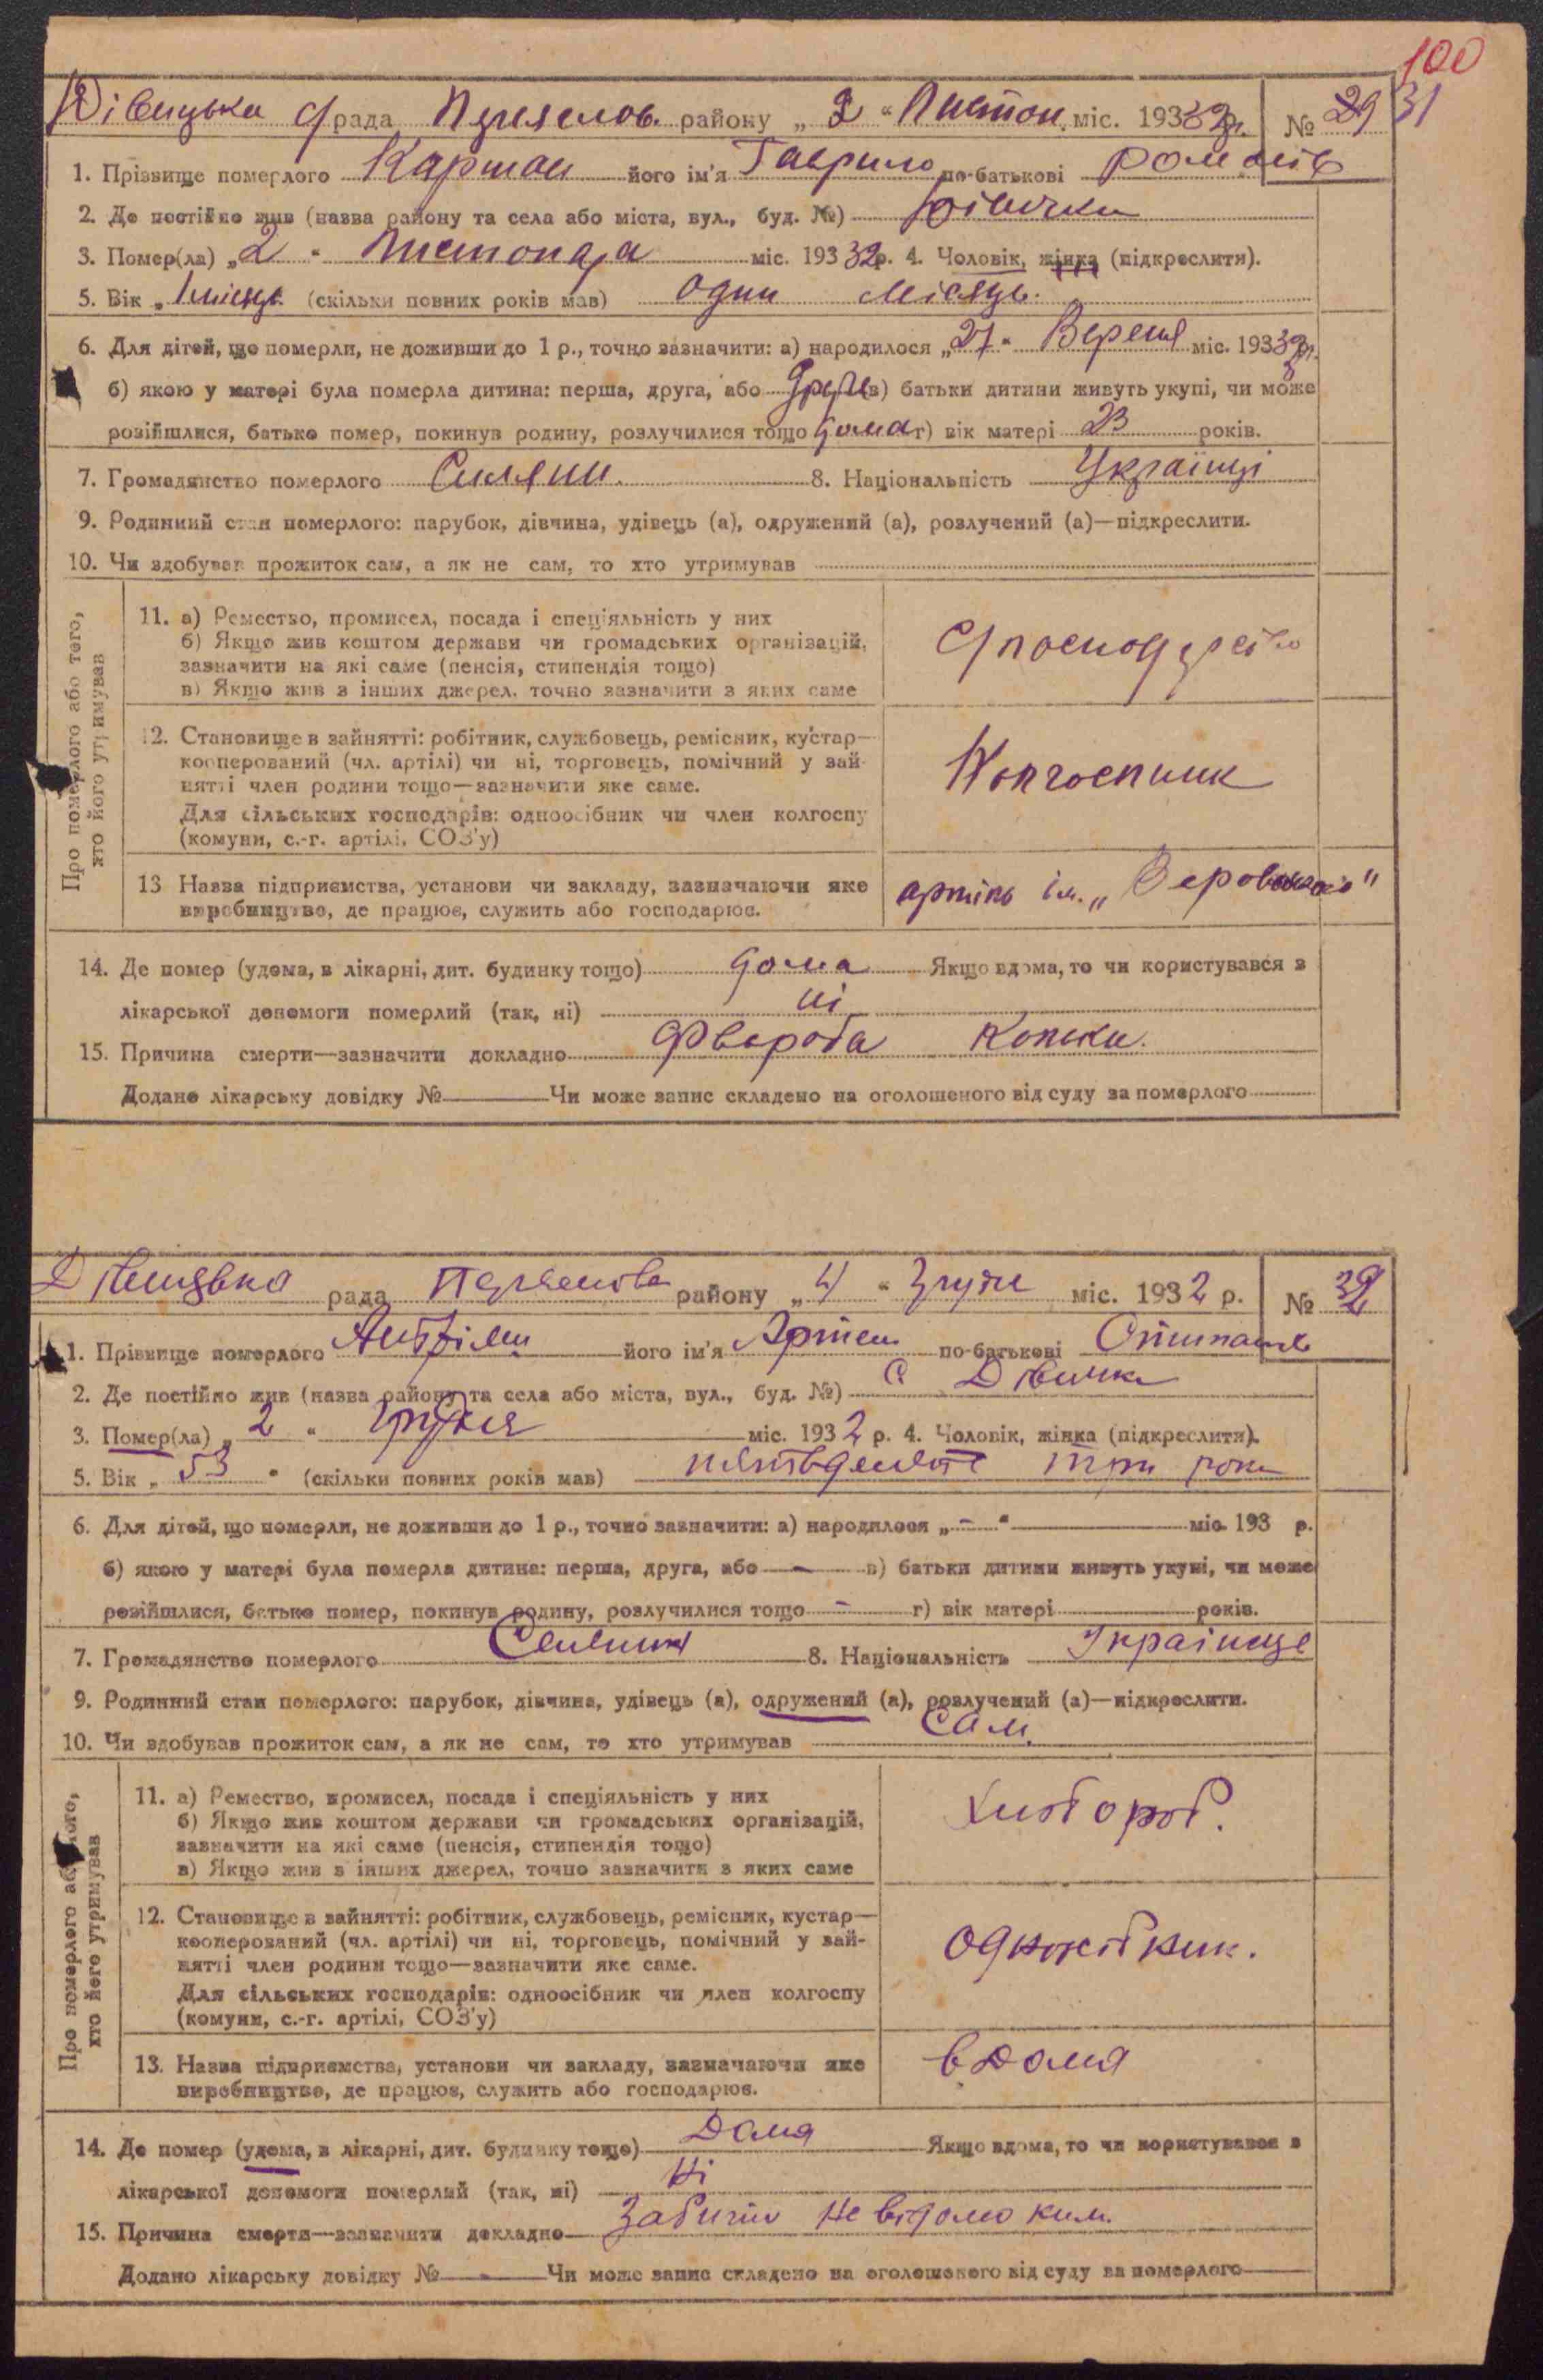 100
Дівицька рада Переяслов. району „2“ Листоп. міс. 1932 р. № 29 31
1. Прізвище померлого його ім'я Гаврило по-батькові Романів
2. Де постійно жив (назва району та села або міста, вул., буд. №) Дівички
3. Помер(ла) „2“ Листопада міс. 1932 р. 4. Чоловік, жінка (підкреслити).
5. Вік „1 місяць (скільки повних років мав) один місяць.
6. Для дітей, що померли, не доживши до 1 р., точно зазначити: а) народилося „27“ Вересня міс. 1932 р.
б) якою у матері була померла дитина: перша, друга, або друга в) батьки дитини живуть укупі, чи може
розійшлися, батько помер, покинув родину, розлучилися тощо дома г) вік матері 23 років.
7. Громадянство померлого Селяни 8. Національність Українці
9. Родинний стан померлого: парубок, дівчина, удівець (а), одружений (а), розлучений (а)—підкреслити.
10. Чи здобував прожиток сам, а як не сам, то хто утримував
Про померлого або того, хто його утримував
11. а) Ремество, промисел, посада і спеціяльність у них
б) Якщо жив коштом держави чи громадських організацій,
зазначити на які саме (пенсія, стипендія тощо)
в) Якщо жив з інших джерел, точно зазначити з яких саме
12. Становище в зайнятті: робітник, службовець, ремісник, кустар—
кооперований (чл. артілі) чи ні, торговець, помічний у зай-
нятті член родини тощо—зазначити яке саме.
Для сільських господарів: одноосібник чи член колгоспу
(комуни, с.-г. артілі, СОЗ'у)
Колгоспник
13 Назва підприємства, установи чи закладу, зазначаючи яке
виробництво, де працює, служить або господарює.
артіль ім.
14. Де помер (удома, в лікарні, дит. будинку тощо) дома Якщо вдома, то чи користувався з
лікарської допомоги померлий (так, ні) ні
15. Причина смерти—зазначити докладно хвороба Кольки.
Додано лікарську довідку № Чи може запис складено на оголошеного від суду за померлого
Дівицька рада Переяслов району „4“ Грудня міс. 1932 р. № 32
1. Прізвище померлого його ім'я Артем по-батькові
2. Де постійно жив (назва району та села або міста, вул., буд. №) с Дівички
3. Помер(ла) „2“ Грудня міс. 1932 р. 4. Чоловік, жінка (підкреслити).
5. Вік „53“ (скільки повних років мав) пятьдесять три роки
6. Для дітей, що померли, не доживши до 1 р., точно зазначити: а) народилося „-“ міс. 193 р.
б) якою у матері була померла дитина: перша, друга, або - в) батьки дитини живуть укупі, чи може
розійшлися, батько помер, покинув родину, розлучилися тощо - г) вік матері років.
7. Громадянство померлого Селянин 8. Національність Українець
9. Родинний стан померлого: парубок, дівчина, удівець (а), одружений (а), розлучений (а)—підкреслити.
10. Чи здобував прожиток сам, а як не сам, то хто утримував Сам.
Про померлого або того, хто його утримував
11. а) Ремество, промисел, посада і спеціяльність у них
б) Якщо жив коштом держави чи громадських організацій,
зазначити на які саме (пенсія, стипендія тощо)
в) Якщо жив з інших джерел, точно зазначити з яких саме
Хлібороб.
12. Становище в зайнятті: робітник, службовець, ремісник, кустар—
кооперований (чл. артілі) чи ні, торговець, помічний у зай-
нятті член родини тощо—зазначити яке саме.
Для сільських господарів: одноосібник чи член колгоспу
(комуни, с.-г. артілі, СОЗ'у)
одноосібник.
13. Назва підприємства, установи чи закладу, зазначаючи яке
виробництво, де працює, служить або господарює.
в Дома
14. Де помер (удома, в лікарні, дит. будинку тощо) Дома Якщо вдома, то чи користувався з
лікарської допомоги померлий (так, ні) Ні
15. Причина смерти—зазначити докладно Забитий Невідомо ким.
Додано лікарську довідку № - Чи може запис складено на оголошеного від суду за померлого